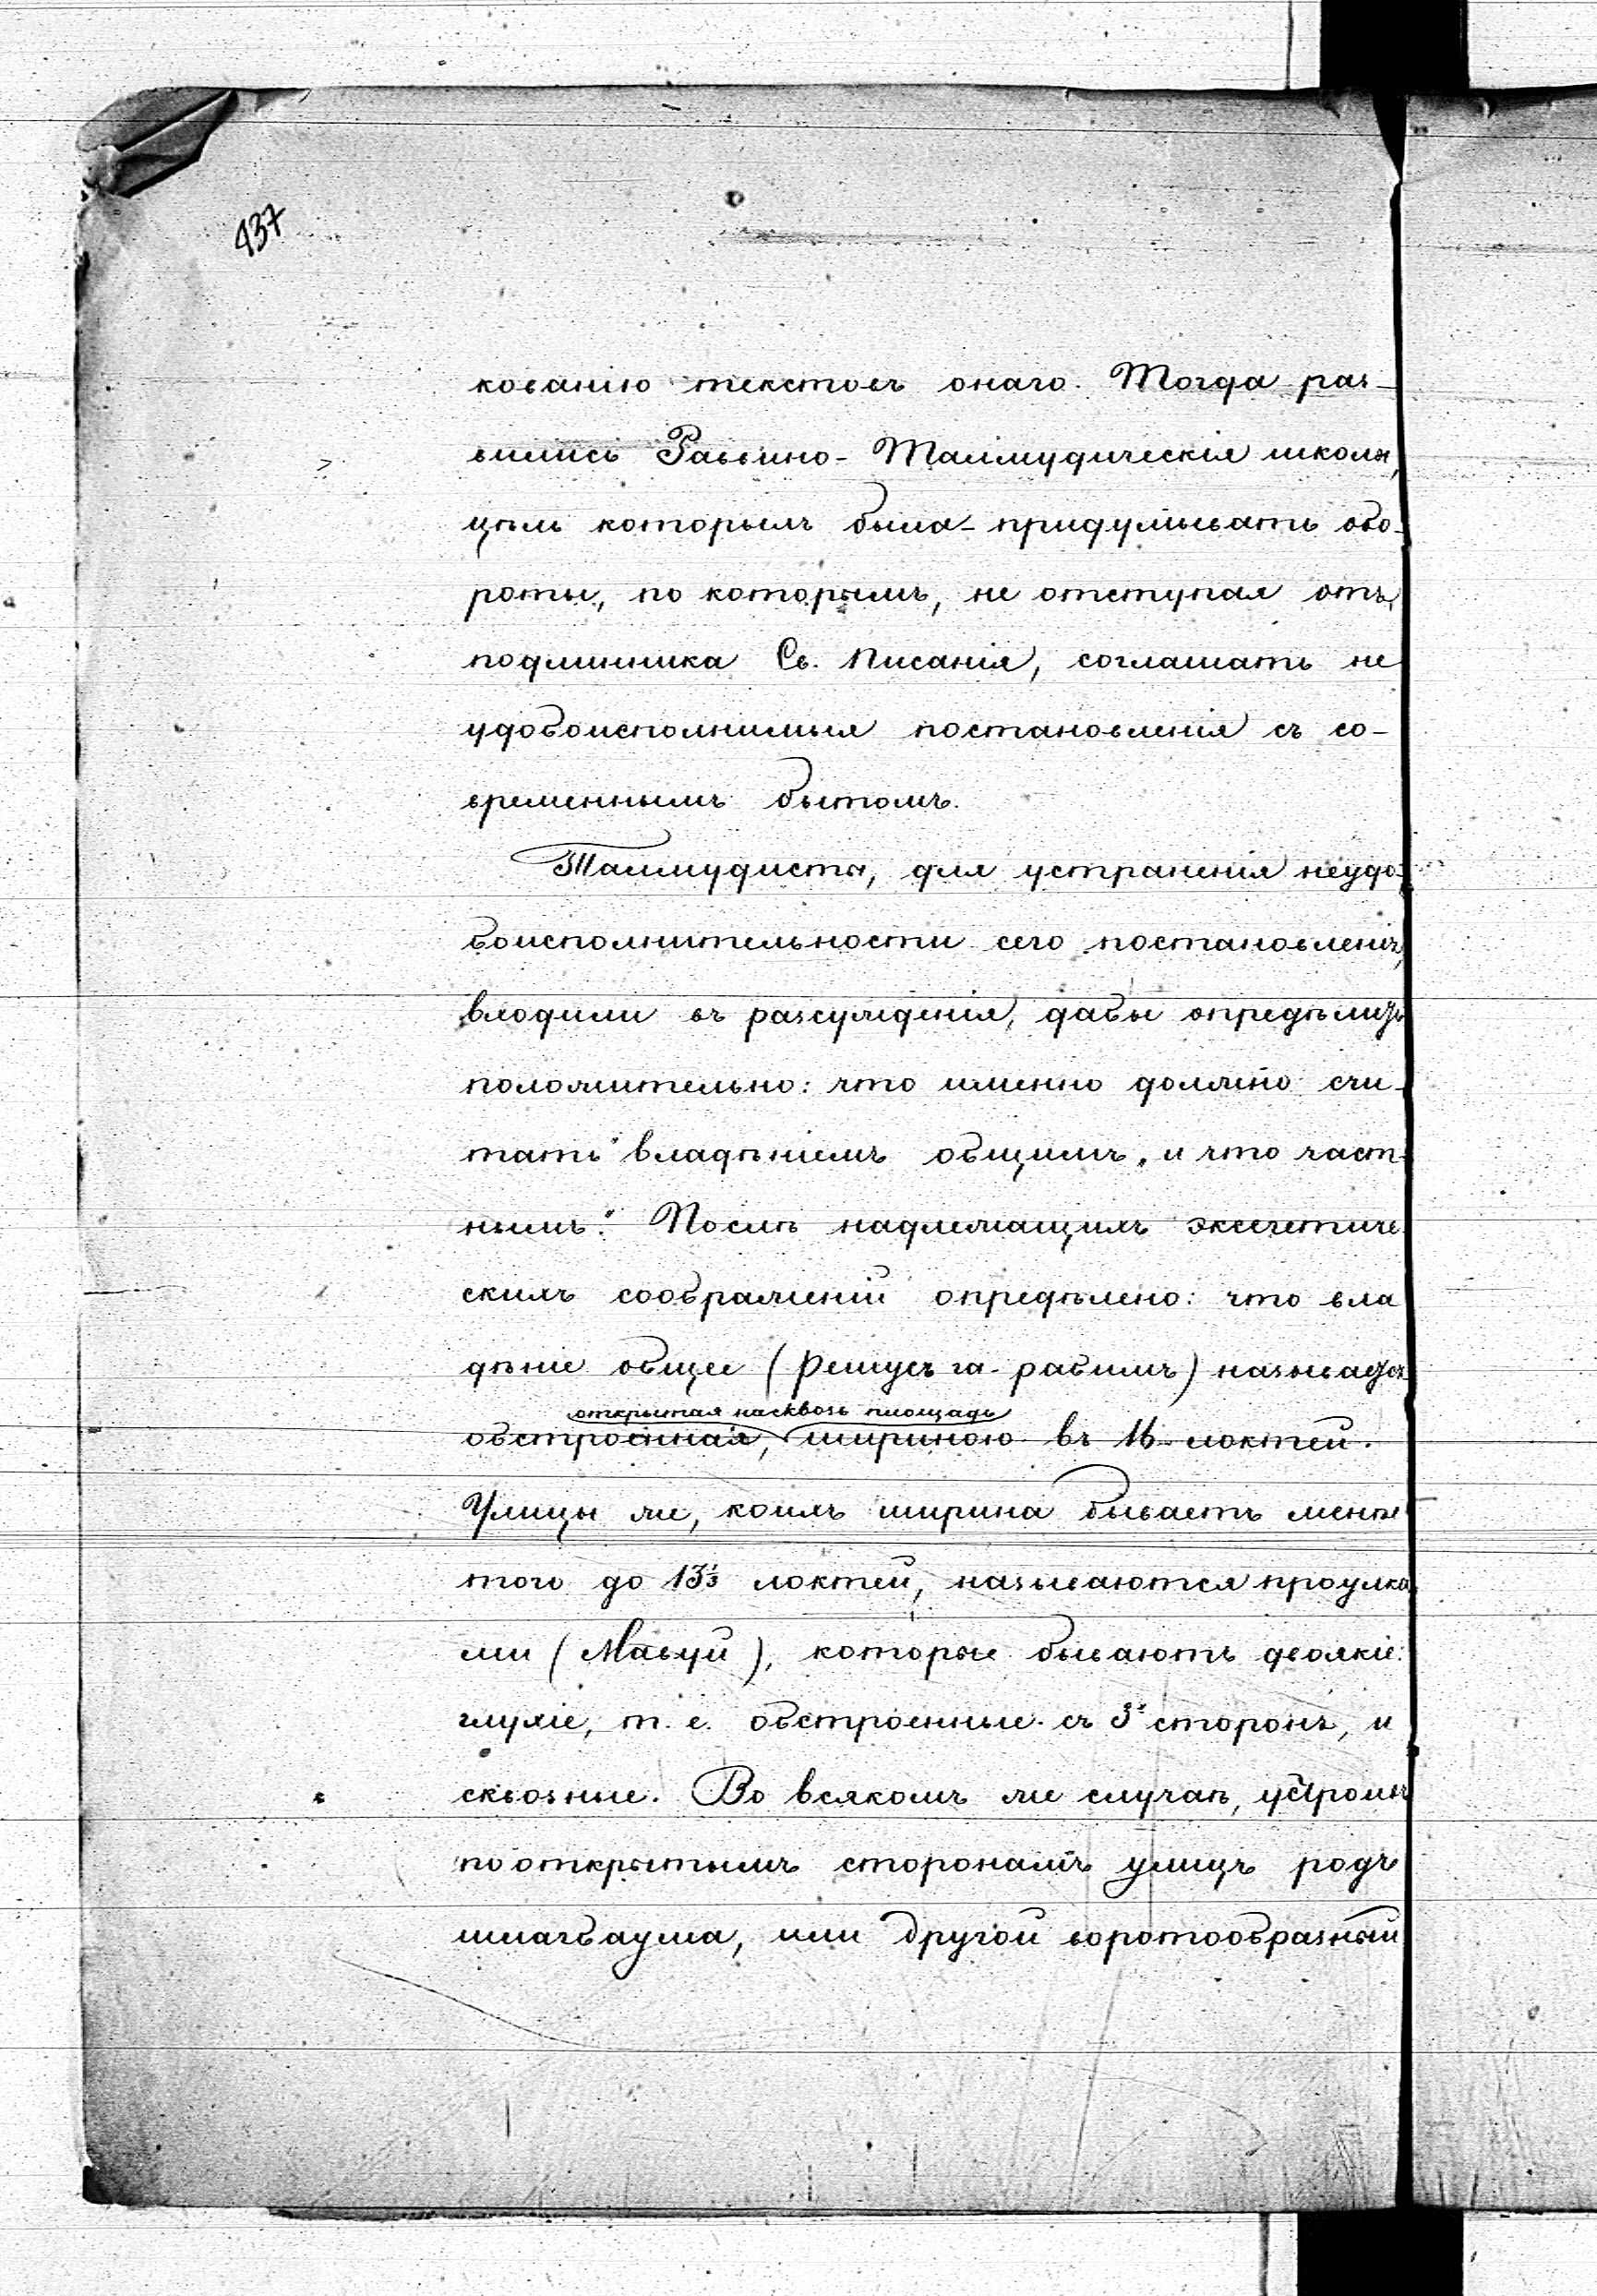 437
кованію текстовъ онаго. Тогда раз-
вились Раввино-Талмудическія школы,
цѣль которыхъ была - придумывать обо-
роты, по которымъ, не отступая отъ
подлинника Св. Писанія, соглашать не
удобоисполнимыя постановленія съ со-
временнымъ бытомъ.
Талмудисты, для устраненія неудо-
боисполнительности сего постановленія,
входили въ разсужденія, дабы опредѣлить
положительно: что именно должно счи-
тать "владѣніемъ общимъ, и что част-
нымъ." Послѣ надлежащихъ экзегетиче
скихъ соображеній опредѣлено: что вла
дѣніе общее (решусъ га-рабимъ) называется
открытая насквозь площадь
обстроенная, шириною въ 16 локтей.
Улицы же, коихъ ширина бываетъ менѣе
того до 13⅓ локтей, называются проулка
ми (Мавуй), которые бываютъ двоякіе:
глухіе, т. е. обстроенные съ 3х сторонъ, и
сквозные. Во всякомъ же случаѣ, устроивъ
по открытымъ сторонамъ улицъ родъ
шлагбаума, или другой воротообразный